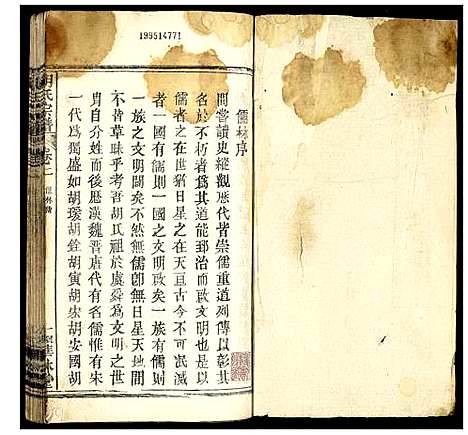 199514771
儒林序
間嘗讀史縱觀歷代者崇儒重道列傳以彰其
名於不朽者爲其道能致治而啟文明也是以
儒者之在世猶日星之在天亘古今不可泯滅
者一國有儒則一國之文明啟矣一族有儒則
一族之文明啟矣不然無儒卽無日星天地
不昔草昧乎考吾胡氏祖於虞舜爲文明之世
胄自分姓而後歷漢魏晋唐代有名儒惟有宋
一代爲獨盛如胡瑗胡銓胡寅胡宏胡安國胡
胡氏宗譜 卷二